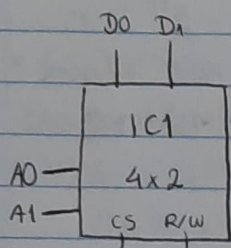 D0 D1
IC1
A0 4x2
A1 CS R/W